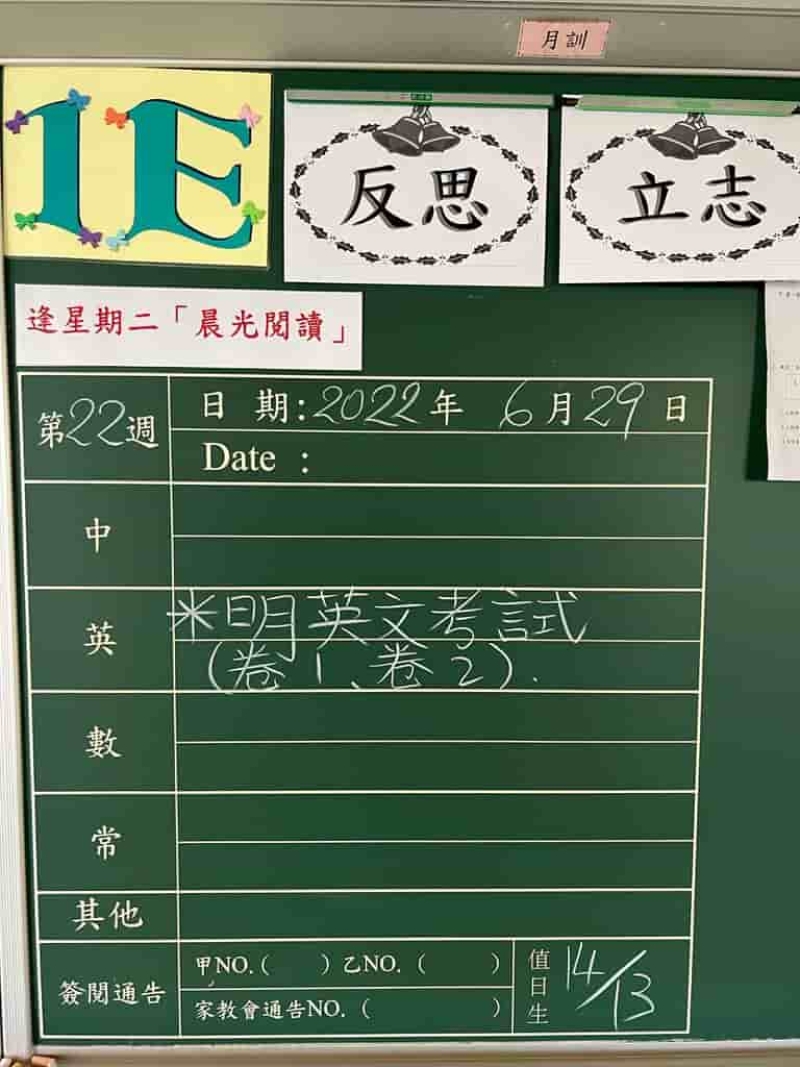 月訓
1E
反思
立志
逢星期二「晨光閱讀」
第22週
日 期:2022年 6月29日
Date :
中
英
*明英文考試
(卷1、卷2).
數
常
其他
簽閱通告
甲NO.( )乙NO. ( )
家教會通告NO. ( )
值日生
14/13